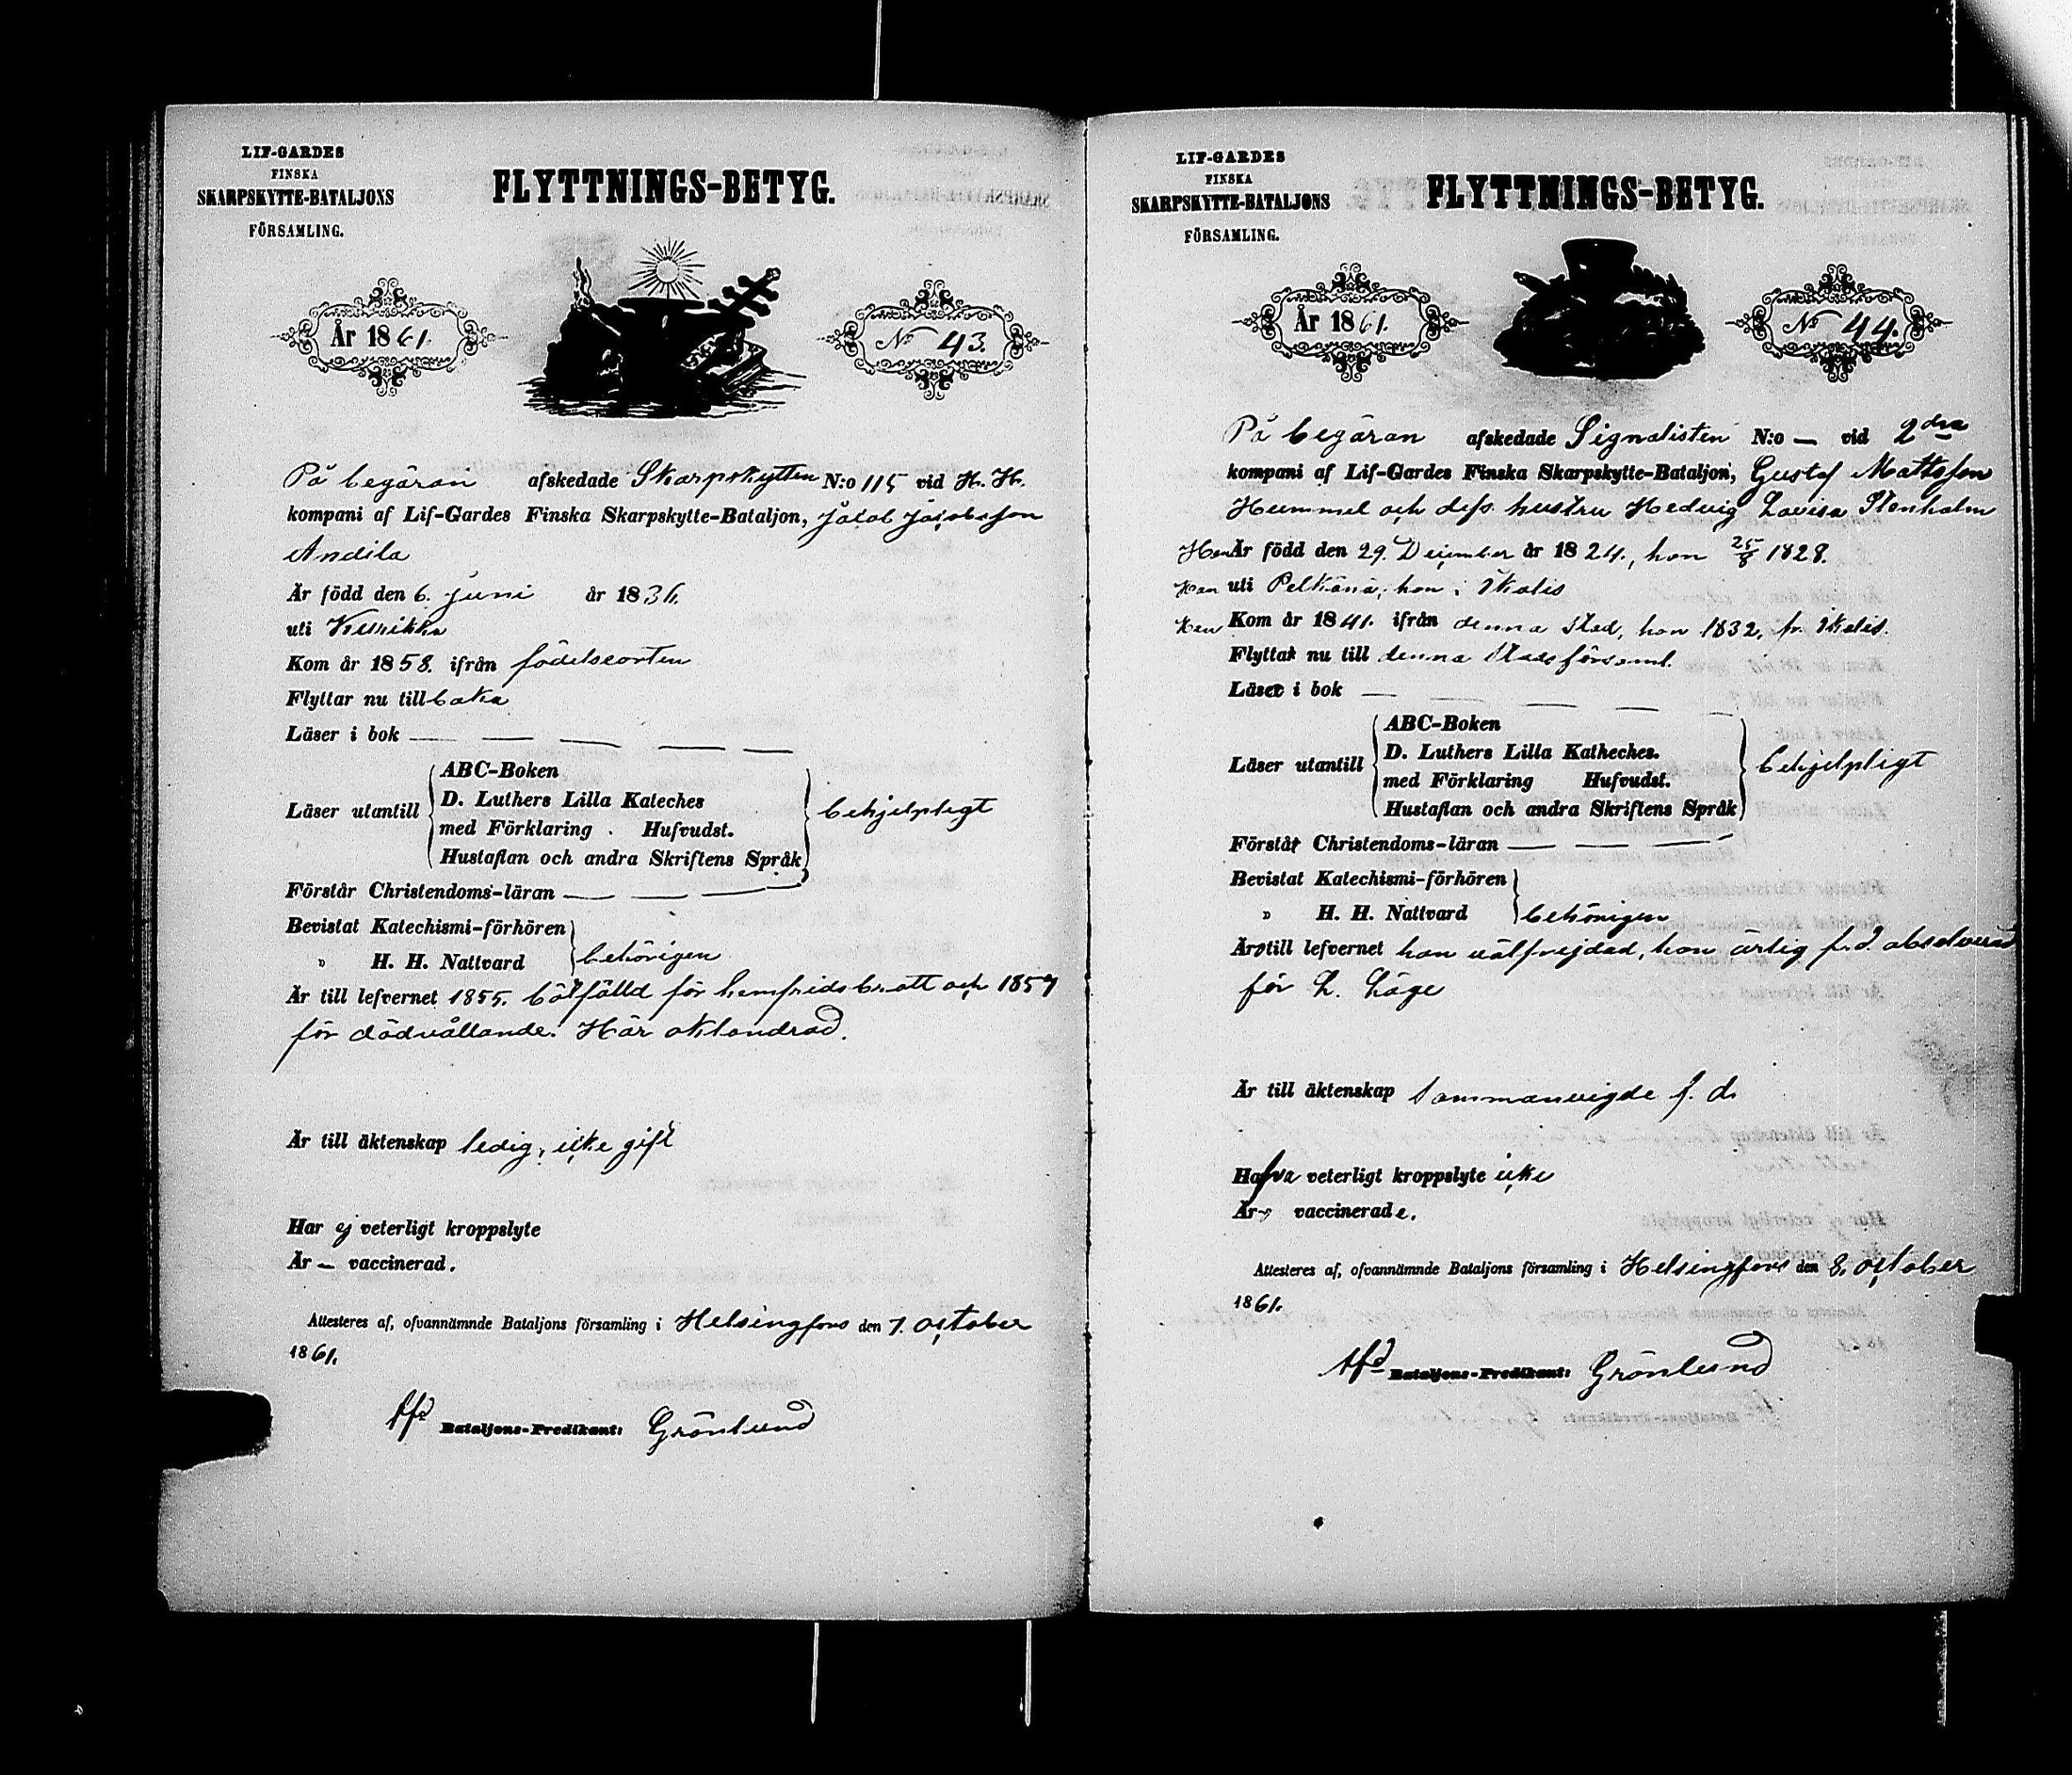 LIF-GARDES
FINSKA
SKARPSKYTTE-BATALJONS
FÖRSAMLING.
FLYTTNINGS-BETYG.
År 1861.
No 43.
På begäran afskedade Skarpskytten N:o 115 vid H. H.
kompani af Lif-Gardes Finska Skarpskytte-Bataljon, Jacob Jacobsson
Andila
Är född den 6. Juni år 1836.
uti
Kom år 1858. ifrån födelseorten
Flyttar nu till baka
Läser i bok — — — — —
Läser utantill
ABC-Boken
D. Luthers Lilla Kateches
med Förklaring . Hufvudst.
Hustaflan och andra Skriftens Språk
behjelpligt
Förstår Christendoms-läran — — —
Bevistat Katechismi-förhören
» H. H. Nattvard
behörigen
Är till lefvernet 1855. botfälld för hemfridsbrott och 1857
för dödvållande. Här oklandrad.
Är till äktenskap ledig, icke gift
Har ej veterligt kroppslyte
Är — vaccinerad.
Attesteres af, ofvannämnde Bataljons församling i Helsingfors den 7. October
1861.
Bataljons-Predikant: Grönlund
LIF-GARDES
FINSKA
SKARPSKYTTE-BATALJONS
FÖRSAMLING.
FLYTTNINGS-BETYG.
År 1861.
No 44.
På begäran afskedade Signalisten N:o — vid 2dra
kompani af Lif-Gardes Finska Skarpskytte-Bataljon, Gustaf Mattsson
Hummel och dess hustru Hedvig Lovisa Stenholm
Han Är född den 29. December år 1824., hon 25/8 1828.
Han uti Pelkänä, hon i Ikalis
Han Kom år 1841. ifrån denna stad, hon 1832, fr. Ikalis.
Flytta nu till denna Stads församl.
Läser i bok — — — — —
Läser utantill
ABC-Boken
D. Luthers Lilla Katheches.
med Förklaring Hufvudst.
Hustaflan och andra Skriftens Språk
behjelpligt
Förstår Christendoms-läran — — — —
Bevistat Katechismi-förhören
» H. H. Nattvard
behörigen
Äro till lefvernet han välfrejdad, hon ärlig f. d. absolverad
för L. Läge
Är till äktenskap Sammanvigde f. d.
Hafva veterligt kroppslyte icke
Är vaccinerade.
Attesteres af, ofvannämnde Bataljons församling i Helsingfors den 8. October
1861.
Bataljons-Predikant: Grönlund